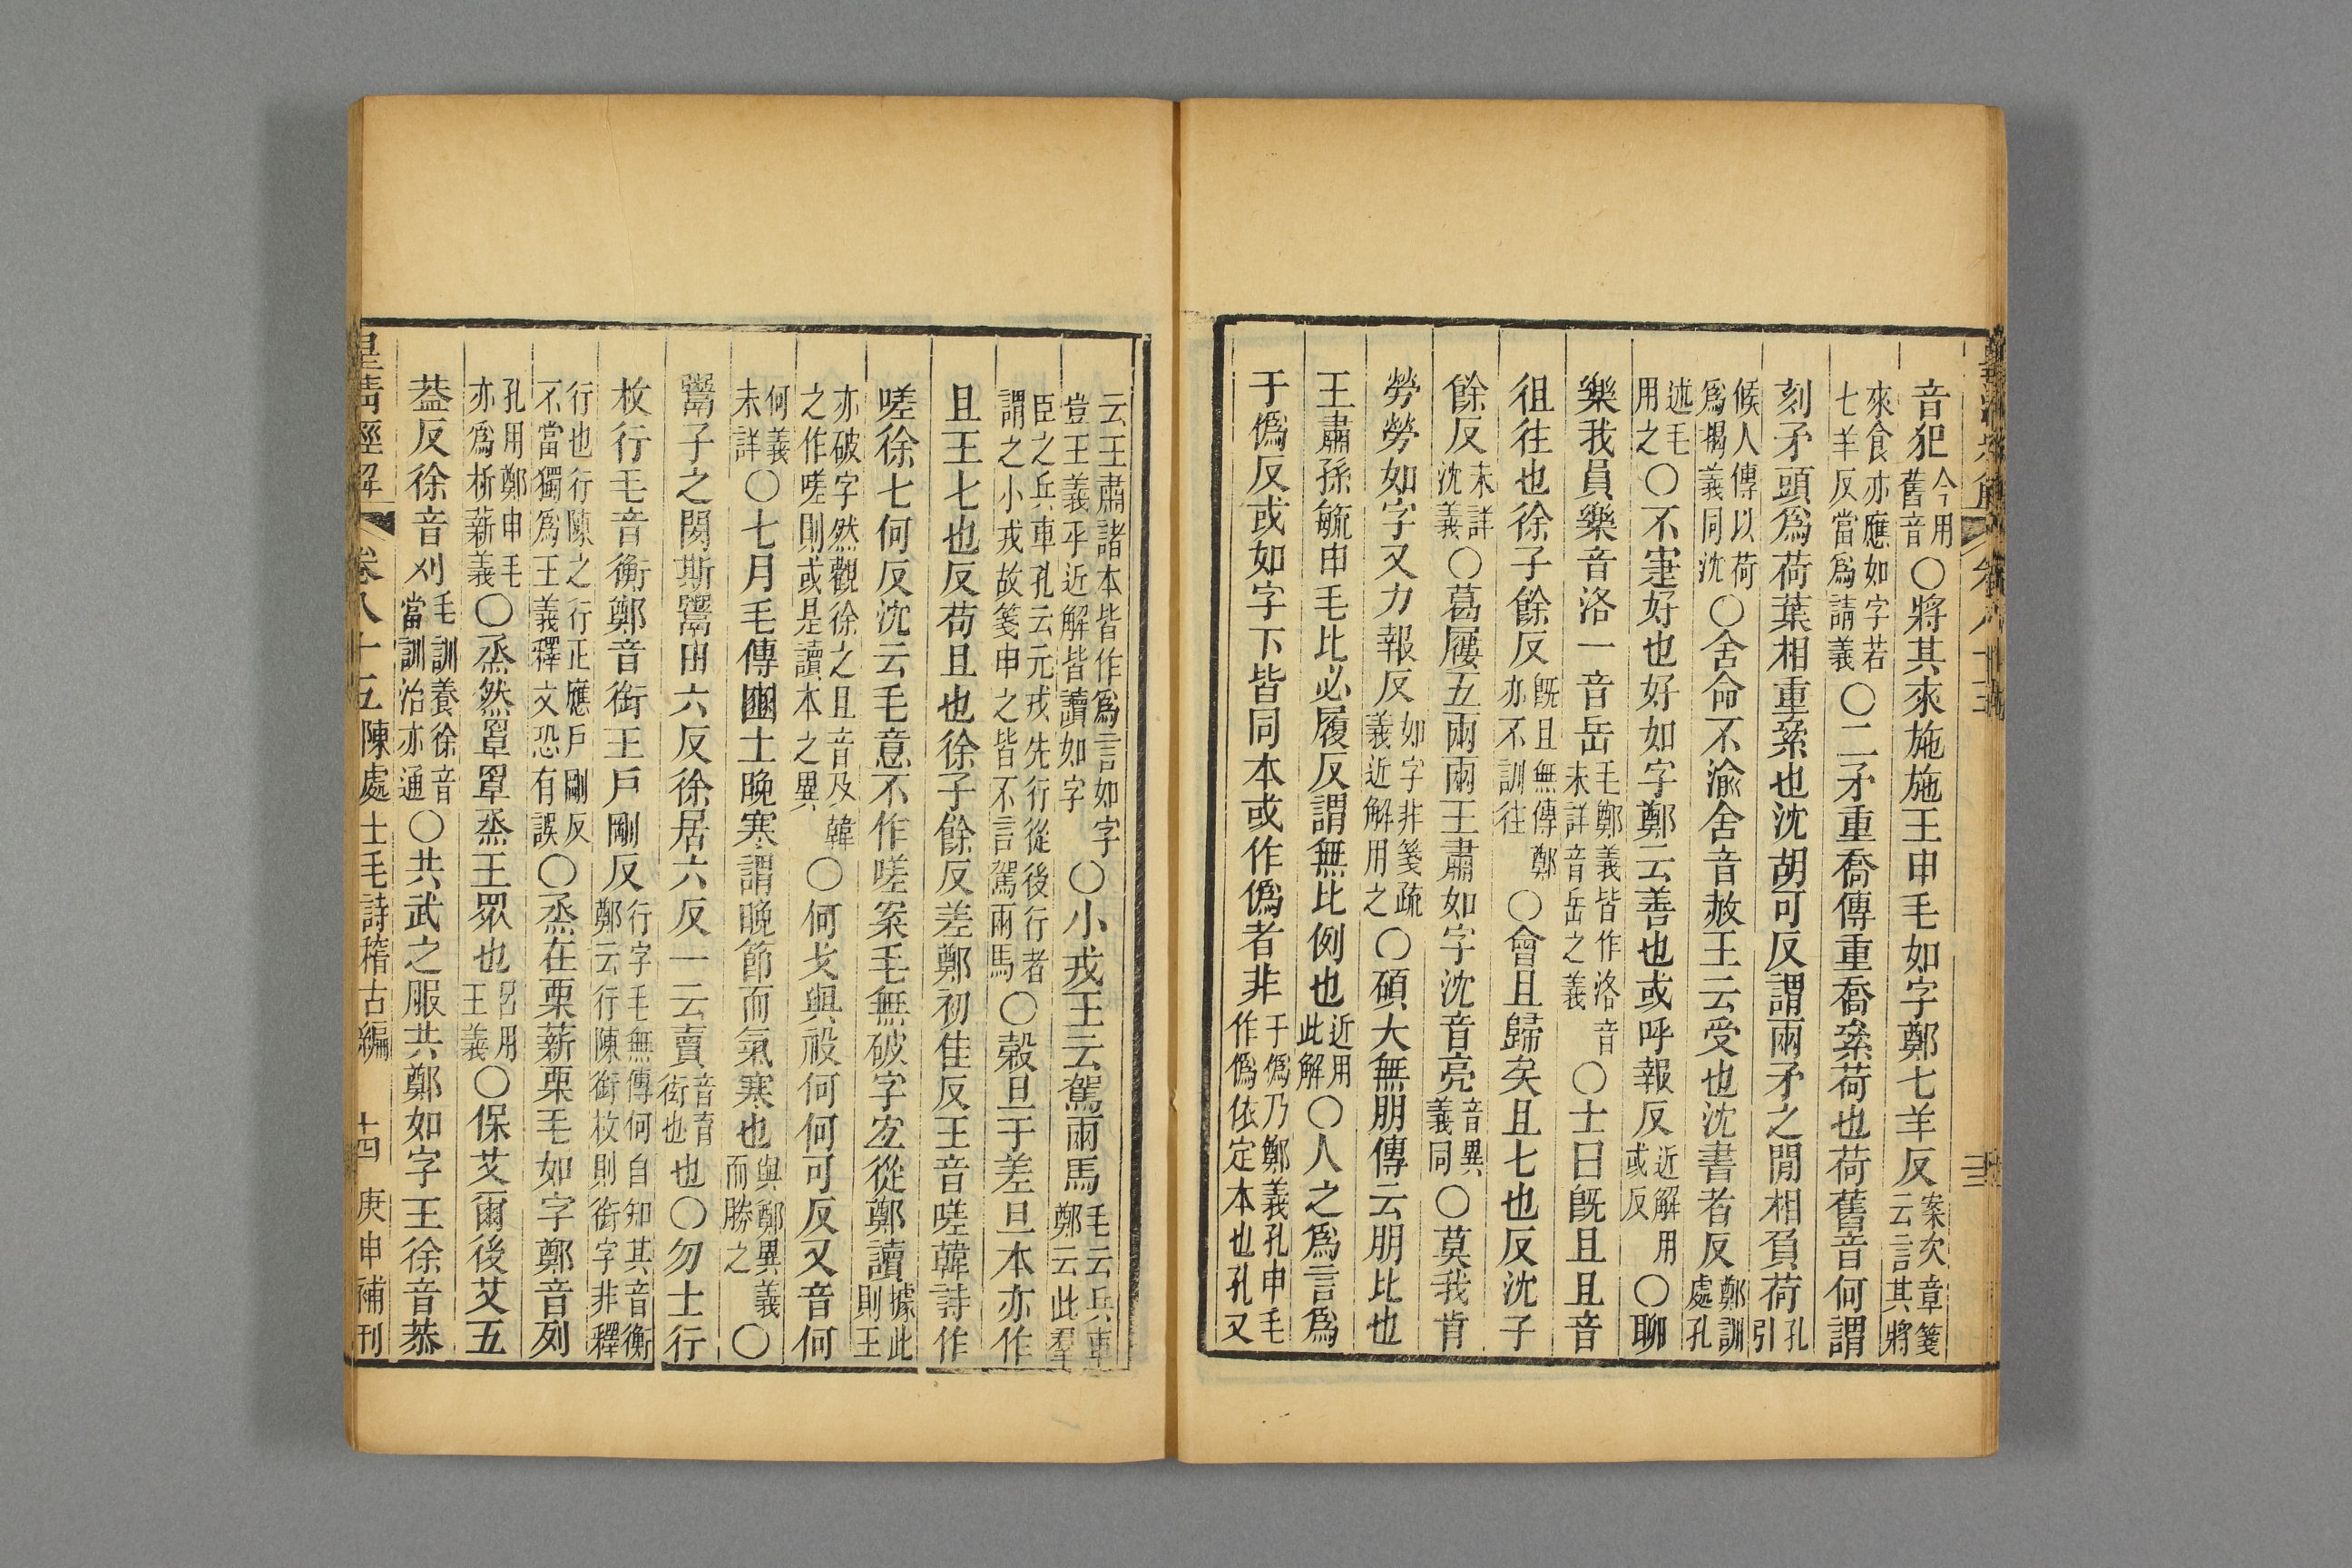 音犯今用舊音○將其來施施王申毛如字鄭七羊反案次章箋云言其將
來食亦應如字若七羊反當爲請義○二矛重喬傳重喬絫荷也荷舊音何謂
刻矛頭爲荷葉相重絫也沈胡可反謂兩矛之閒相負荷孔引
候人傳以荷爲揭義同沈○舍命不渝舍音赦王云受也沈書者反鄭訓處孔
述毛用之○不寁好也好如字鄭云善也或呼報反近解用或反○聊
樂我員樂音洛一音岳毛鄭義皆作洛音未詳音岳之義○士曰旣且且音
徂往也徐子餘反旣且無傳鄭亦不訓往○會且歸矣且七也反沈子
餘反未詳沈義○葛屨五兩兩王肅如字沈音亮音異義同○莫我肯
勞勞如字又力報反如字非箋疏義近解用之○碩大無朋傳云朋比也
王肅孫毓申毛比必履反謂無比例也近用此解○人之爲言爲
于僞反或如字下皆同本或作僞者非于僞乃鄭義孔申毛作僞依定本也孔又
云王肅諸本皆作爲言如字豈王義乎近解皆讀如字○小戎王云駕兩馬毛云兵車鄭云此羣
臣之兵車孔云元戎先行從後行者謂之小戎故箋申之皆不言駕兩馬○榖旦于差旦本亦作
且王七也反苟且也徐子餘反差鄭初佳反王音嗟韓詩作
嗟徐七何反沈云毛意不作嗟案毛無破字宐從鄭讀據此則王
亦破字然觀徐之且音及韓之作嗟則或是讀本之異○何戈與祋何何可反又音何
何義未詳○七月毛傳豳土晚寒謂晚節而氣寒也與鄭異義而勝之○
鬻子之閔斯鬻由六反徐居六反一云賣音育衒也也○勿士行
枚行毛音衡鄭音銜王戶剛反行字毛無傳何自知其音衡鄭云行陳銜枚則銜字非釋
行也行陳之行正應戶剛反不當獨爲王義釋文恐有誤○烝在栗薪栗毛如字鄭音列
孔用鄭申毛亦爲析薪義○烝然罩罩烝王眾也呂用王義○保艾爾後艾五
葢反徐音刈毛訓養徐音當訓治亦通○共武之服共鄭如字王徐音恭
皇淸經解 卷八十五 陳處士毛詩稽古編 十四 庚申補刊